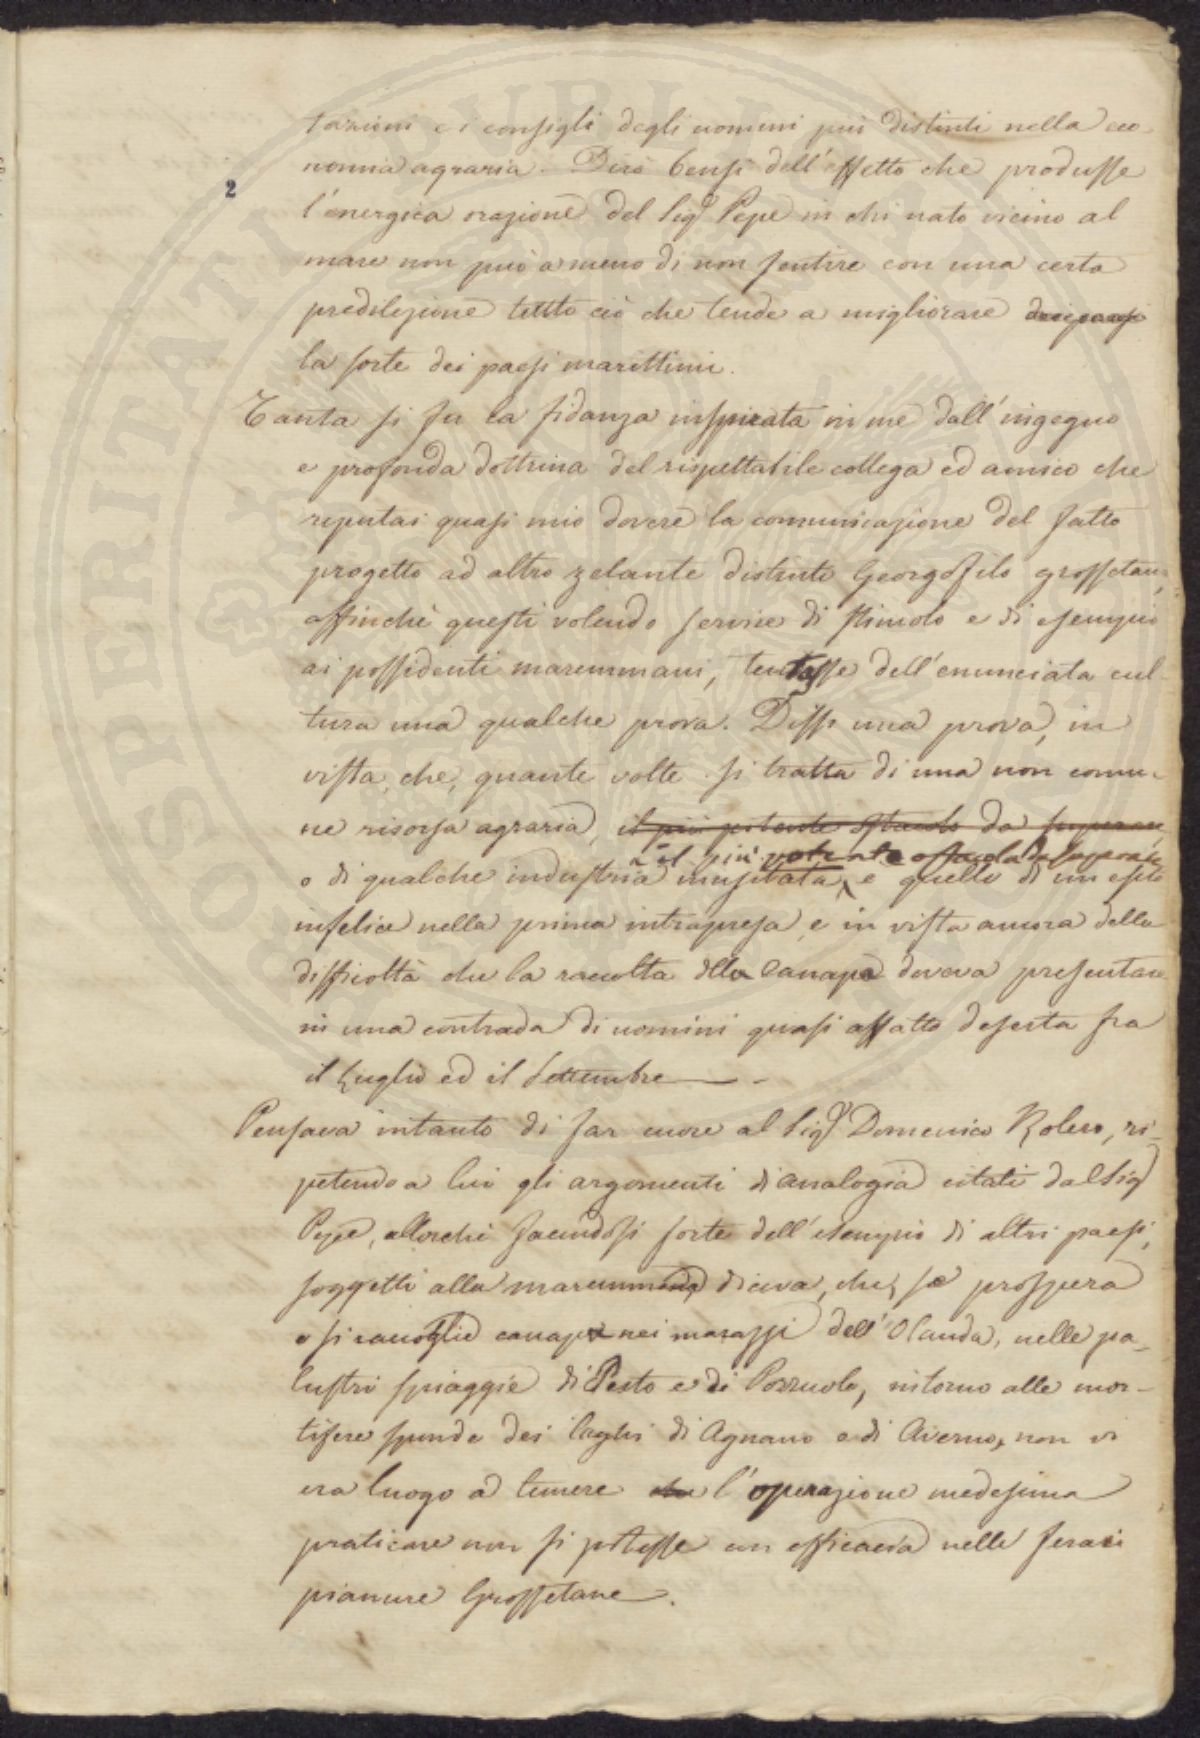 tazioni e i consigli degli uomini più distinti nella eco-
nomia agraria. Dirò bensì dell'effetto che produsse
2
l'energica orazione del Sig.r Pepe in chi nato vicino al
mare non può a meno di non sentire con una certa
predilezione tutto ciò che tende a migliorare dei paesi
la sorte dei paesi marittimi.
Tanta si fu la fidanza inspirata in me dall'ingegno
e profonda dottrina del rispettabile collega ed amico che
reputai quasi mio dovere la comunicazione del fatto
progetto ad altro zelante distinto Georgofilo grossetano,
affinchè questi volendo servire di stimolo e di esempio
ai possidenti maremmani, tentasse dell'enunciata cul-
tura una qualche prova. Dissi una prova, in
vista, che, quante volte si tratta di una non comu-
ne risorsa agraria, il più potente ostacolo da superare
il più potente ostacolo da superare
o di qualche industria inusitata, è quello di un esito
infelice nella prima intrapresa, e in vista ancora della
difficoltà che la raccolta della Canapa doveva presentare
in una contrada di uomini quasi affatto deserta fra
il Luglio ed il Settembre
Pensava intanto di far cuore al Sig.r Domenico ri-
petendo a lui gli argomenti di analogia citati dal Sig.r
Pepe, allorchè facendosi forte dell'esempio di altri paesi,
soggetti alla maremmana diceva, che, se prospera
e si raccoglie canapa nei marazzi dell'Olanda, nelle pa-
lustri spiaggie di Pesto e di Pozzuolo, intorno alle mor-
tifere sponde dei laghi di Agnano e di Averno, non vi
era luogo a temere che l'operazione medesima
praticare non si potesse con efficacia nelle feraci
pianure Grossetane.
PROSPERITATI PUBLICAE